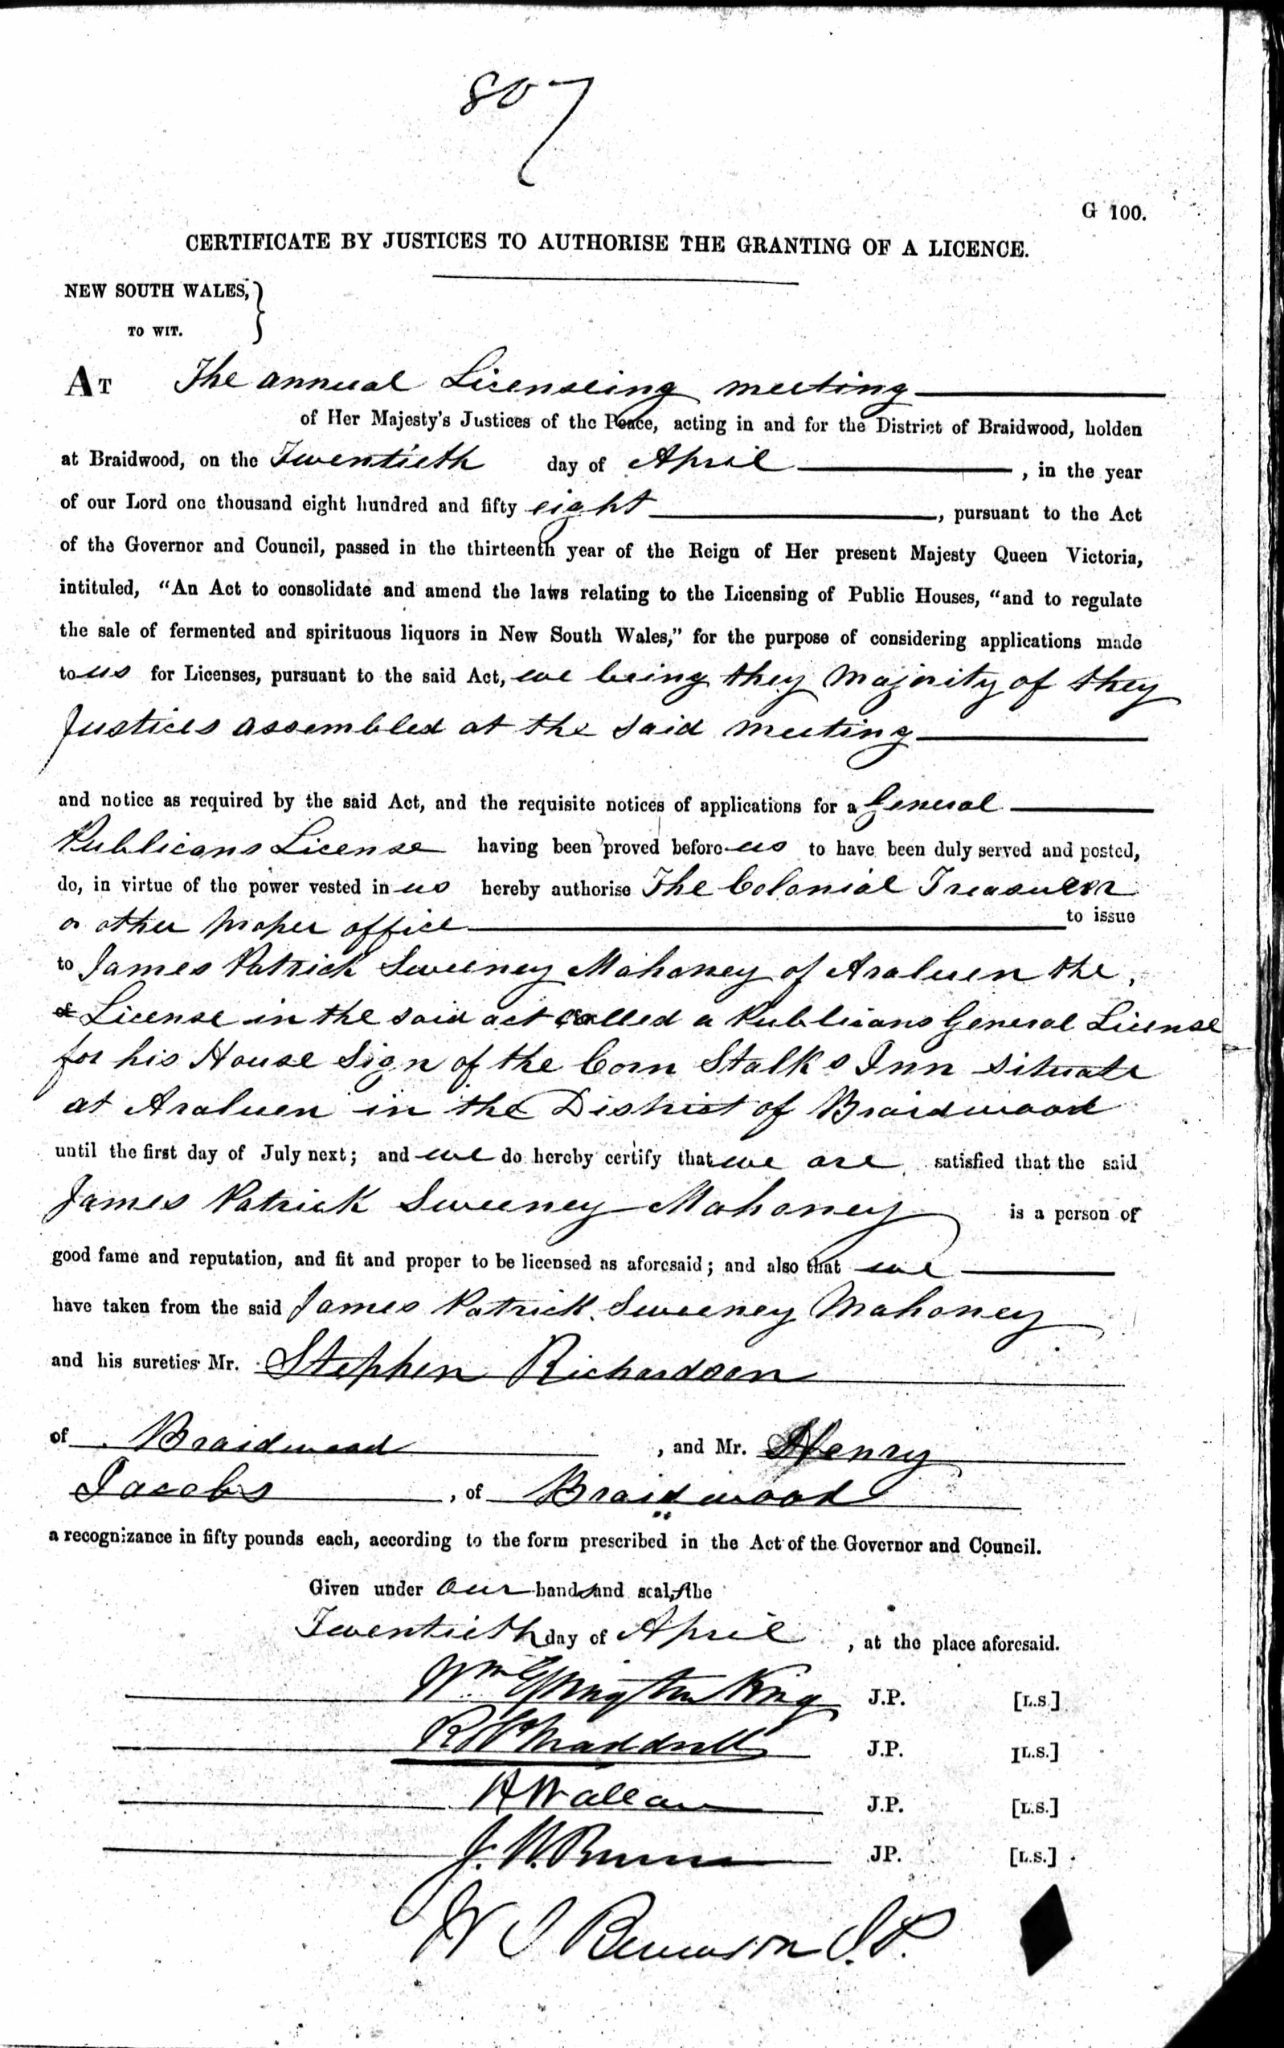 807
G 100.
CERTIFICATE BY JUSTICES TO AUTHORISE THE GRANTING OF A LICENCE.
NEW SOUTH WALES,
TO WIT.
AT The annual Licenseing meeting
of Her Majesty's Justices of the Peace, acting in and for the District of Braidwood, holden
at Braidwood, on the Twentieth day of April , in the year
of our Lord one thousand eight hundred and fifty eight , pursuant to the Act
of the Governor and Council, passed in the thirteenth year of the Reign of Her present Majesty Queen Victoria,
intituled, "An Act to consolidate and amend the laws relating to the Licensing of Public Houses, "and to regulate
the sale of fermented and spirituous liquors in New South Wales," for the purpose of considering applications made
to us for Licenses, pursuant to the said Act, we being they Majority of they
Justices assembled at the said meeting
and notice as required by the said Act, and the requisite notices of applications for a General
Publicans License having been proved before us to have been duly served and posted,
do, in virtue of the power vested in us hereby authorise The Colonial Treasurer
or other proper office to issue
to James Patrick Sweeney Mahoney of Araluen the
License in the said act called a Publicans General License
for his House Sign of the Corn Stalks Inn situate
at Araluen in the District of Braidwood
until the first day of July next; and we do hereby certify that we are satisfied that the said
James Patrick Sweeney Mahoney is a person of
good fame and reputation, and fit and proper to be licensed as aforesaid; and also that we
have taken from the said James Patrick Sweeney Mahoney
and his sureties Mr. Stephen Richardson
of Braidwood , and Mr. Henry
Jacobs , of Braidwood
a recognizance in fifty pounds each, according to the form prescribed in the Act of the Governor and Council.
Given under our hands and seal, the
Twentieth day of April , at the place aforesaid.
Wm King J.P. [L.S.]
Maddrell J.P. [L.S.]
J.P. [L.S.]
J. W. JP. [L.S.]
J.P.